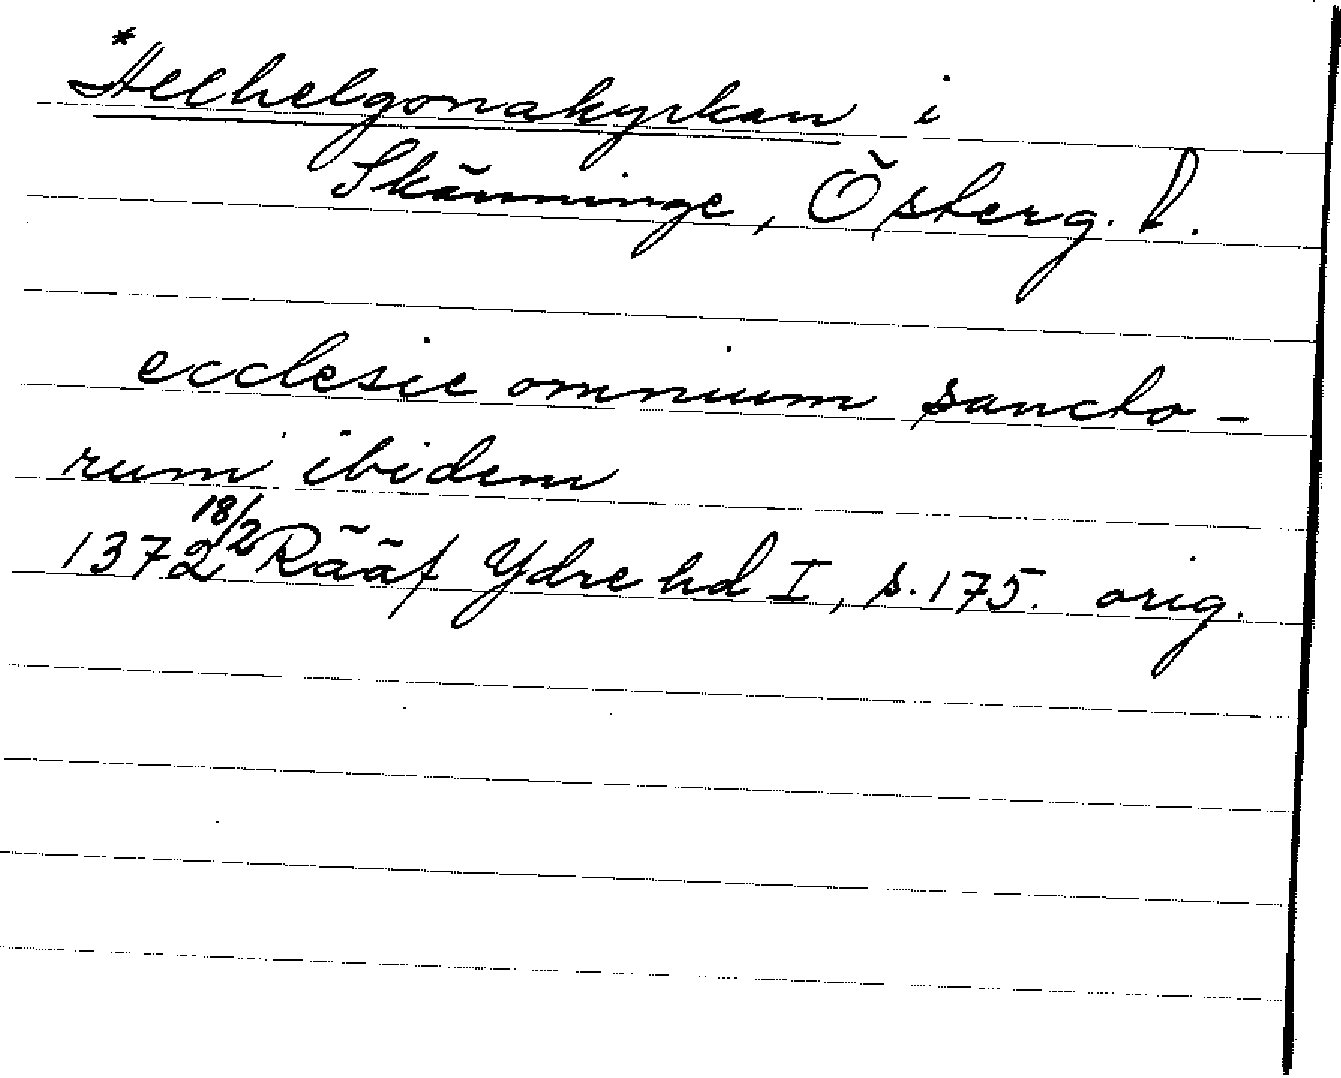 *Allhelgonakyrkan i
Skänninge, Österg. l.
ecclesie omnium sancto-
rum ibidem
1372 18/2 Rääf Ydre hd I, s. 175. orig.